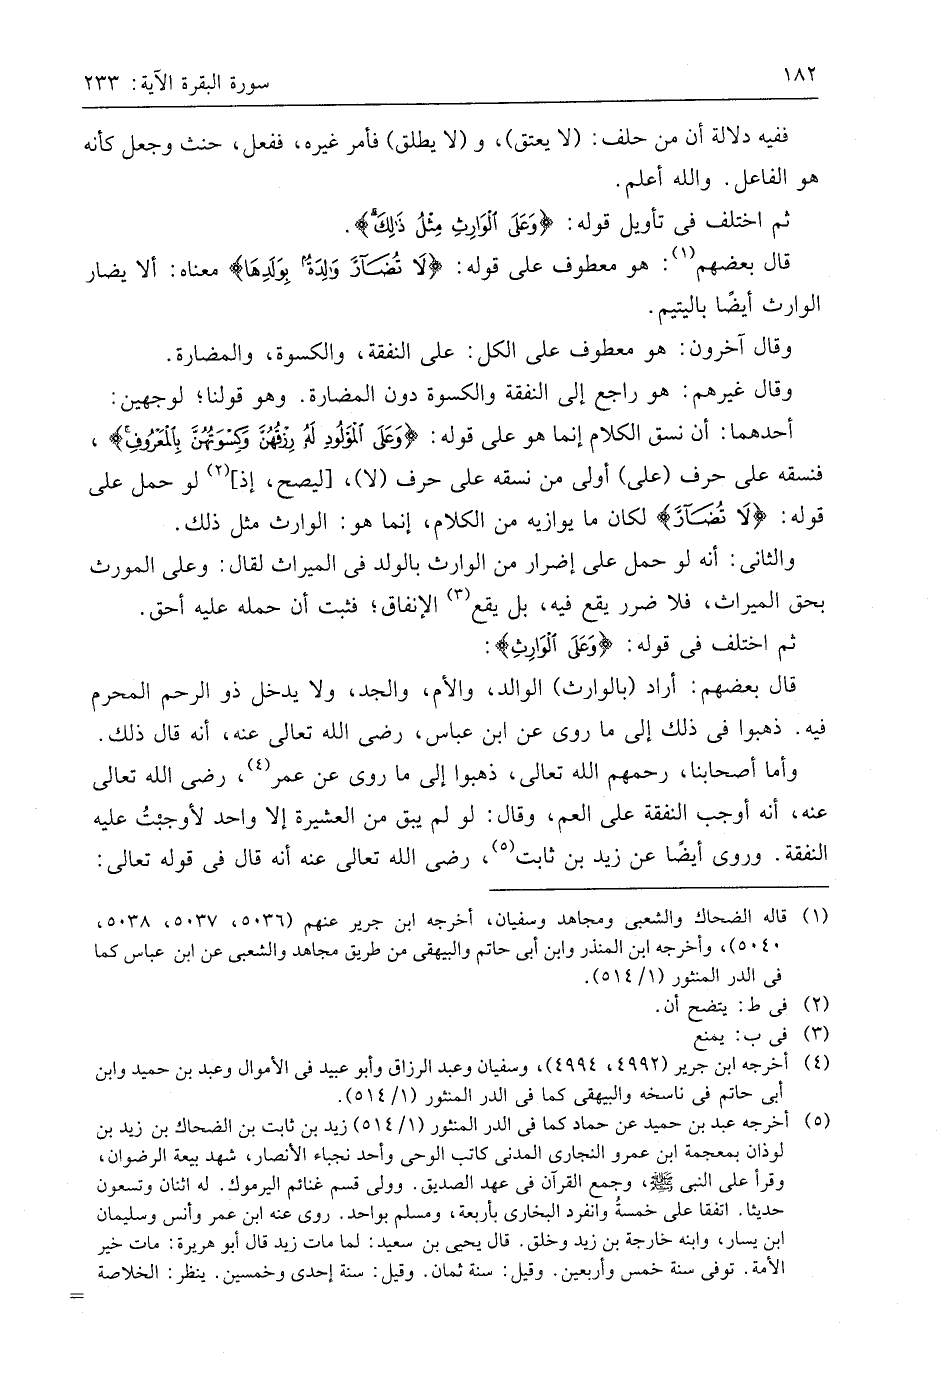 ١٨٢
سورة البقرة الآية: ٢٣٣
ففيه دلالة أن من حلف: (لا يعتق)، و (لا يطلق) فأمر غيره، ففعل، حنث وجعل كأنه
هو الفاعل. والله أعلم.
ثم اختلف فى تأويل قوله: ﴿وَعَلَى ٱلْوَارِثِ مِثْلُ ذَٰلِكَ﴾.
قال بعضهم(١): هو معطوف على قوله: ﴿لَا تُضَآرَّ وَٰلِدَةٌۢ بِوَلَدِهَا﴾ معناه: ألا يضار
الوارث أيضًا باليتيم.
وقال آخرون: هو معطوف على الكل: على النفقة، والكسوة، والمضارة.
وقال غيرهم: هو راجع إلى النفقة والكسوة دون المضارة. وهو قولنا؛ لوجهين:
أحدهما: أن نسق الكلام إنما هو على قوله: ﴿وَعَلَى ٱلْمَوْلُودِ لَهُۥ رِزْقُهُنَّ وَكِسْوَتُهُنَّ بِٱلْمَعْرُوفِ﴾ ،
فنسقه على حرف (على) أولى من نسقه على حرف (لا)، [ليصح، إذ](٢) لو حمل على
قوله: ﴿لَا تُضَآرَّ﴾ لكان ما يوازيه من الكلام، إنما هو: الوارث مثل ذلك.
والثانى: أنه لو حمل على إضرار من الوارث بالولد فى الميراث لقال: وعلى المورث
بحق الميراث، فلا ضرر يقع فيه، بل يقع(٣) الإنفاق؛ فثبت أن حمله عليه أحق.
ثم اختلف فى قوله: ﴿وَعَلَى ٱلْوَارِثِ﴾:
قال بعضهم: أراد (بالوارث) الوالد، والأم، والجد، ولا يدخل ذو الرحم المحرم
فيه. ذهبوا فى ذلك إلى ما روى عن ابن عباس، رضى الله تعالى عنه، أنه قال ذلك.
وأما أصحابنا، رحمهم الله تعالى، ذهبوا إلى ما روى عن عمر(٤)، رضى الله تعالى
عنه، أنه أوجب النفقة على العم، وقال: لو لم يبق من العشيرة إلا واحد لأوجبْتُ عليه
النفقة. وروى أيضًا عن زيد بن ثابت(٥)، رضى الله تعالى عنه أنه قال فى قوله تعالى:
(١) قاله الضحاك والشعبى ومجاهد وسفيان، أخرجه ابن جرير عنهم (٥٠٣٦، ٥٠٣٧، ٥٠٣٨،
٥٠٤٠)، وأخرجه ابن المنذر وابن أبى حاتم والبيهقى من طريق مجاهد والشعبى عن ابن عباس كما
فى الدر المنثور (١/ ٥١٤).
(٢) فى ط: يتضح أن.
(٣) فى ب: يمنع
(٤) أخرجه ابن جرير (٤٩٩٢، ٤٩٩٤)، وسفيان وعبد الرزاق وأبو عبيد فى الأموال وعبد بن حميد وابن
أبى حاتم فى ناسخه والبيهقى كما فى الدر المنثور (١/ ٥١٤).
(٥) أخرجه عبد بن حميد عن حماد كما فى الدر المنثور (١/ ٥١٤) زيد بن ثابت بن الضحاك بن زيد بن
لوذان بمعجمة ابن عمرو النجارى المدنى كاتب الوحى وأحد نجباء الأنصار، شهد بيعة الرضوان،
وقرأ على النبى ﷺ، وجمع القرآن فى عهد الصديق. وولى قسم غنائم اليرموك. له اثنان وتسعون
حديثا. اتفقا على خمسةُ وانفرد البخارى بأربعة، ومسلم بواحد. روى عنه ابن عمر وأنس وسليمان
ابن يسار، وابنه خارجة بن زيد وخلق. قال يحيى بن سعيد: لما مات زيد قال أبو هريرة: مات خير
الأمة. توفى سنة خمس وأربعين. وقيل: سنة ثمان. وقيل: سنة إحدى وخمسين. ينظر: الخلاصة
=